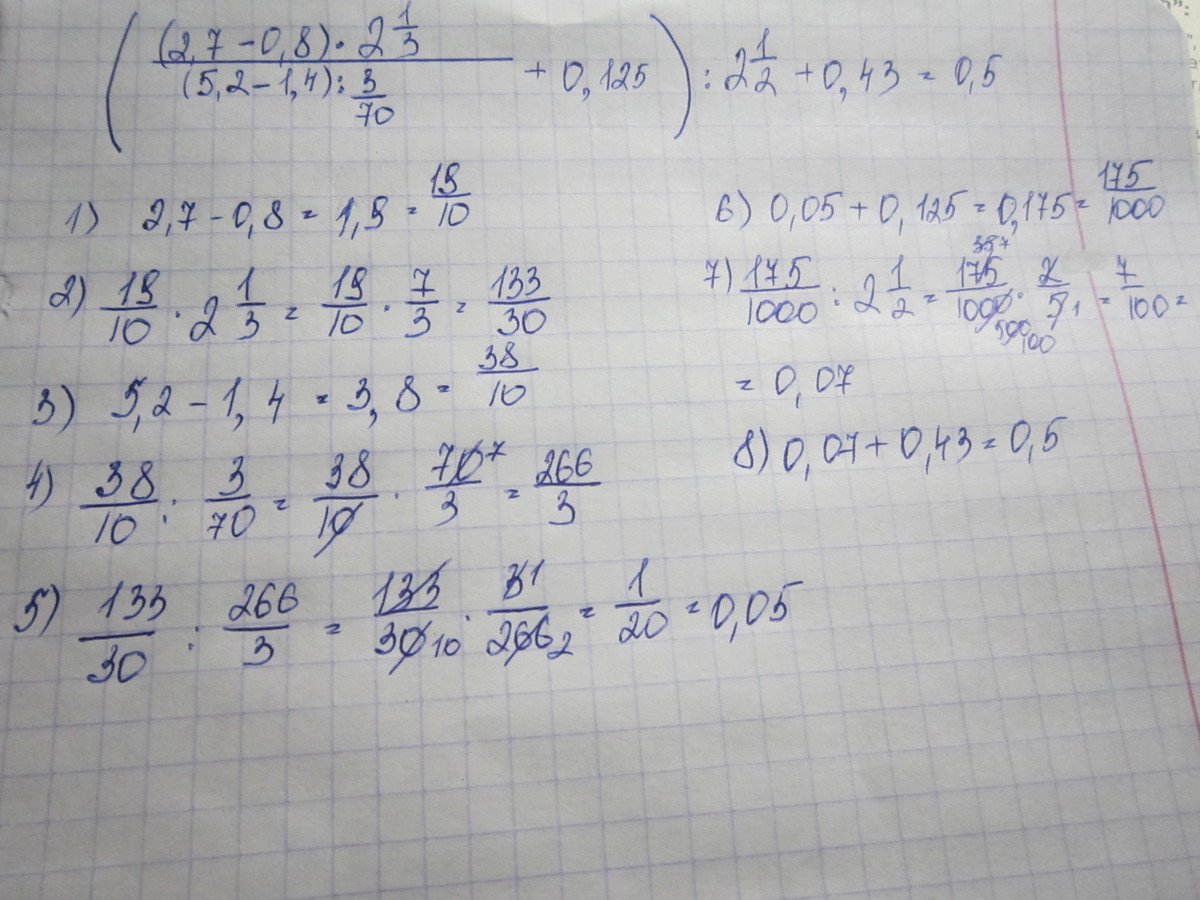 ( (2,7 - 0,8) · 2 1/3 / (5,2 - 1,4) : 3/70 + 0,125 ) : 2 1/2 + 0,43 = 0,5
1) 2,7 - 0,8 = 1,9 = 19/10
2) 19/10 · 2 1/3 = 19/10 · 7/3 = 133/30
3) 5,2 - 1,4 = 3,8 = 38/10
4) 38/10 : 3/70 = 38/10 · 70 7/3 = 266/3
5) 133/30 : 266/3 = 133/30 10 · 3 1/266 2 = 1/20 = 0,05
6) 0,05 + 0,125 = 0,175 = 175/1000
7) 175/1000 : 2 1/2 = 175 35 7/1000 500 100 · 2/5 1 = 7/100 =
= 0,07
8) 0,07 + 0,43 = 0,5